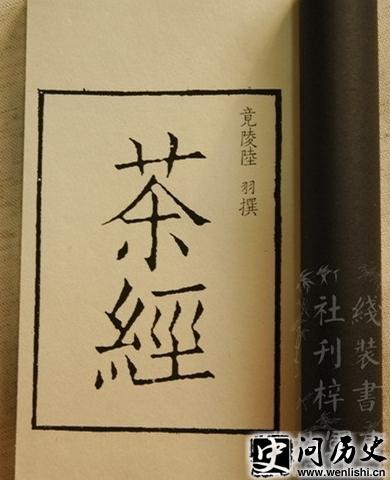 綫裝書
社刊梓
竟陵陸 羽撰
茶經
史问历史
www.wenlishi.cn